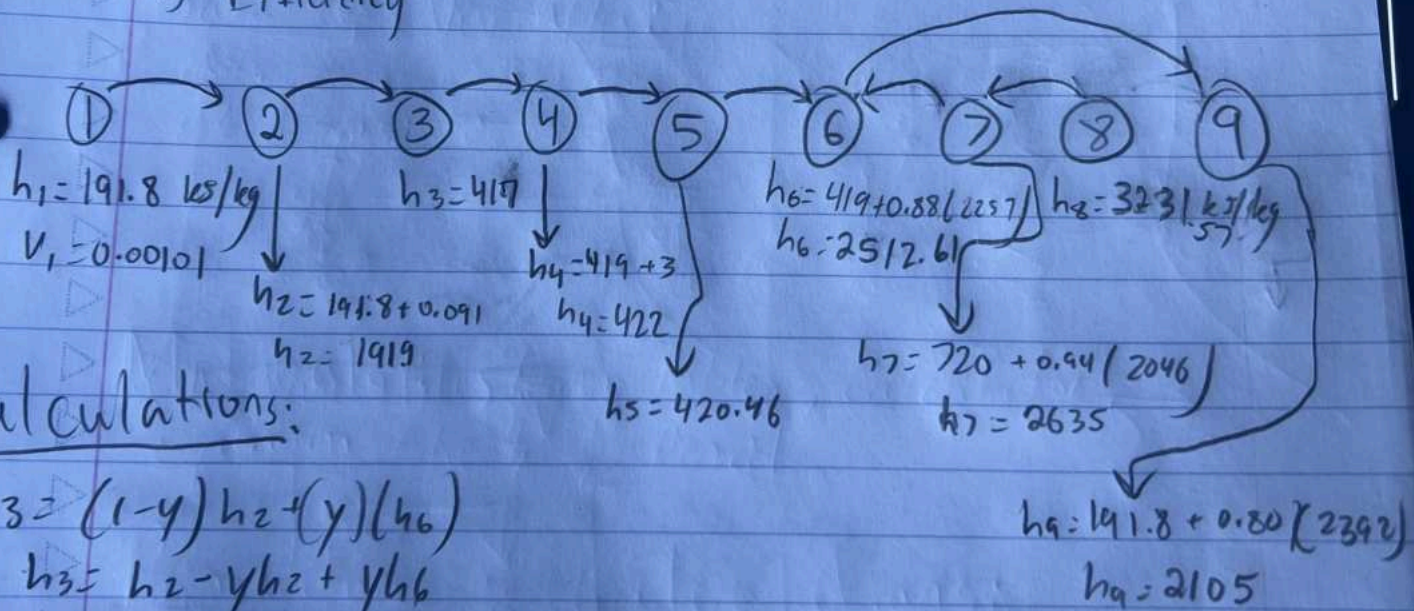 Efficiency
① → ② → ③ → ④ → ⑤ → ⑥ ← ⑦ ← ⑧ ⑨
h₁ = 191.8 kJ/kg
V₁ = 0.00101
h₂ = 191.8 + 0.091
h₂ = 1919
h₃ = 417
h₄ = 419 + 3
h₄ = 422
h₅ = 420.46
h₆ = 419 + 0.88(2257)
h₆ = 2512.61
h₇ = 720 + 0.94(2046)
h₇ = 2635
h₈ = 3231 kJ/kg
.57
h₉ = 191.8 + 0.80(2392)
h₉ = 2105
lculations:
3 = (1-y)h₂ + (y)(h₆)
h₃ = h₂ - yh₂ + yh₆